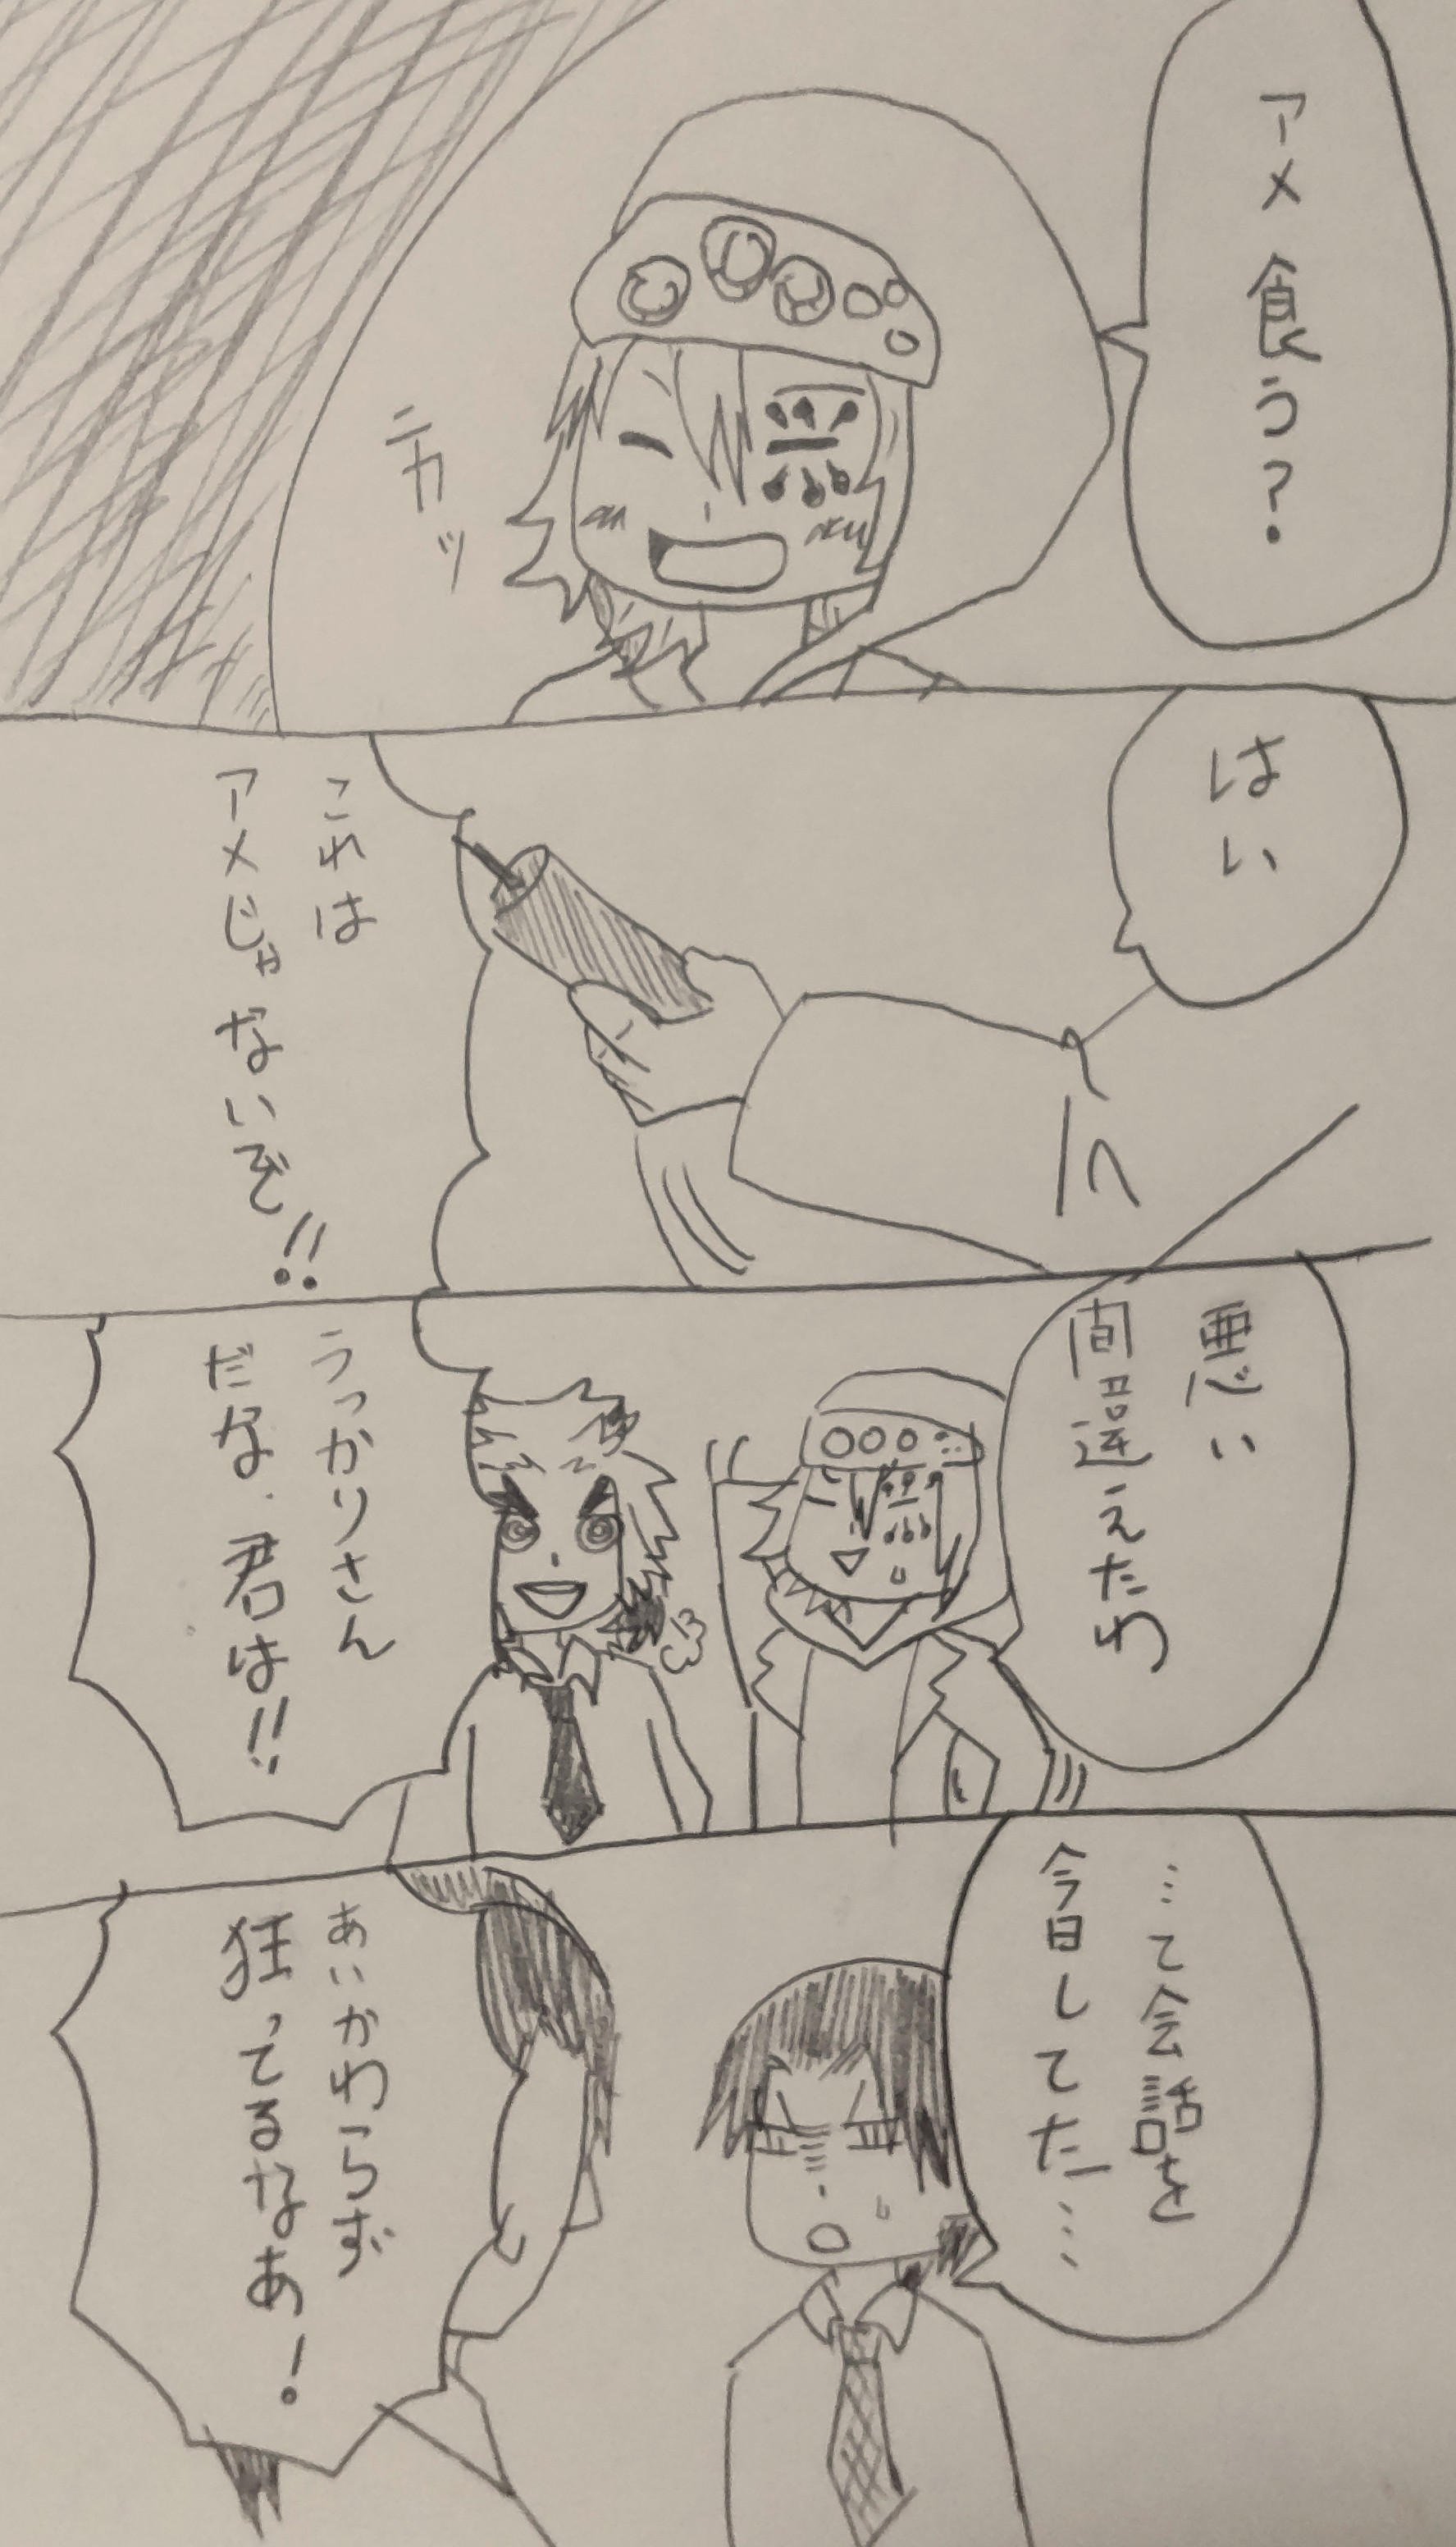 アメ食う?
ニカッ
はい
これは
アメじゃないぞ!!
悪い
間違えたわ
うっかりさん
だな.君は!!
…て会話を
今日してた…
あいかわらず
狂ってるなあ!